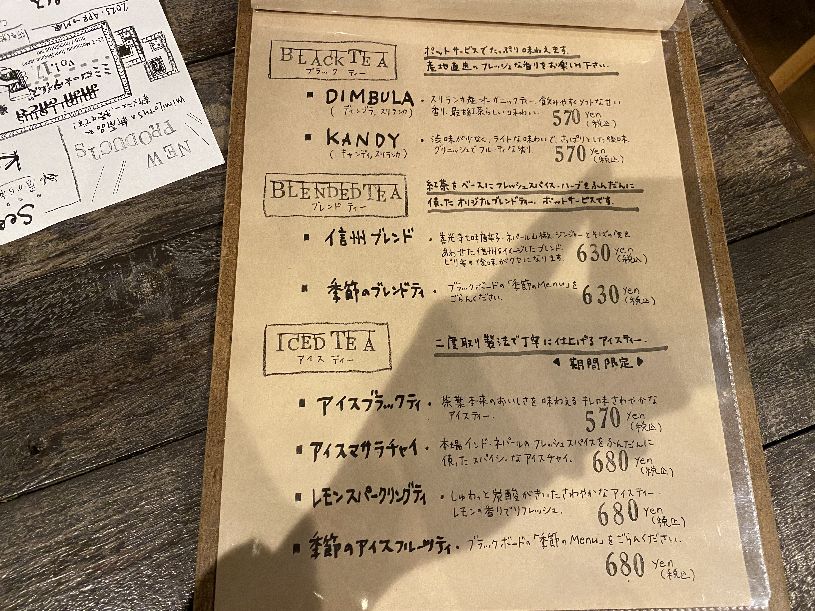 BLACK TEA
ブラック ティー
ポットサービスでたっぷり味わえます。
産地直送のフレッシュな香りをお楽しみ下さい。
▪ DIMBULA
(ディンブラ、スリランカ)
570 yen
(税込)
▪ KANDY
(キャンディ、スリランカ)
・渋味が少なく、ライトな味わいで、さっぱりとした後味
グリニッシュでフルーティな香り
570 yen
(税込)
BLENDED TEA
ブレンド ティー
紅茶をベースにフレッシュスパイス・ハーブをふんだんに
使ったオリジナルブレンドティー。ポットサービスです。
▪ 信州ブレンド
あわせた信州をイメージしたブレンド。
ピリ辛の後味がクセになります。
630 yen
(税込)
▪ 季節のブレンドティ
・ブラックボードの「季節のMenu」を
ごらんください。
630 yen
(税込)
ICED TEA
アイス ティー
二度取り製法で丁寧に仕上げるアイスティー。
◀ 期間限定 ▶
▪ アイスブラックティ
・茶葉本来のおいしさを味わえる さわやかな
アイスティー。
570 yen
(税込)
▪ アイスマサラチャイ
・本場インド・ネパールのフレッシュスパイスをふんだんに
使ったスパイシーなアイスチャイ。
680 yen
(税込)
▪ レモンスパークリングティ
・しゅわっと炭酸がきいたさわやかなアイスティー。
レモンの香りでリフレッシュ。
680 yen
(税込)
▪ 季節のアイスフルーツティ
・ブラックボードの「季節のMenu」をごらんください。
680 yen
(税込)
NEW
PRODUCTS
Vol.17